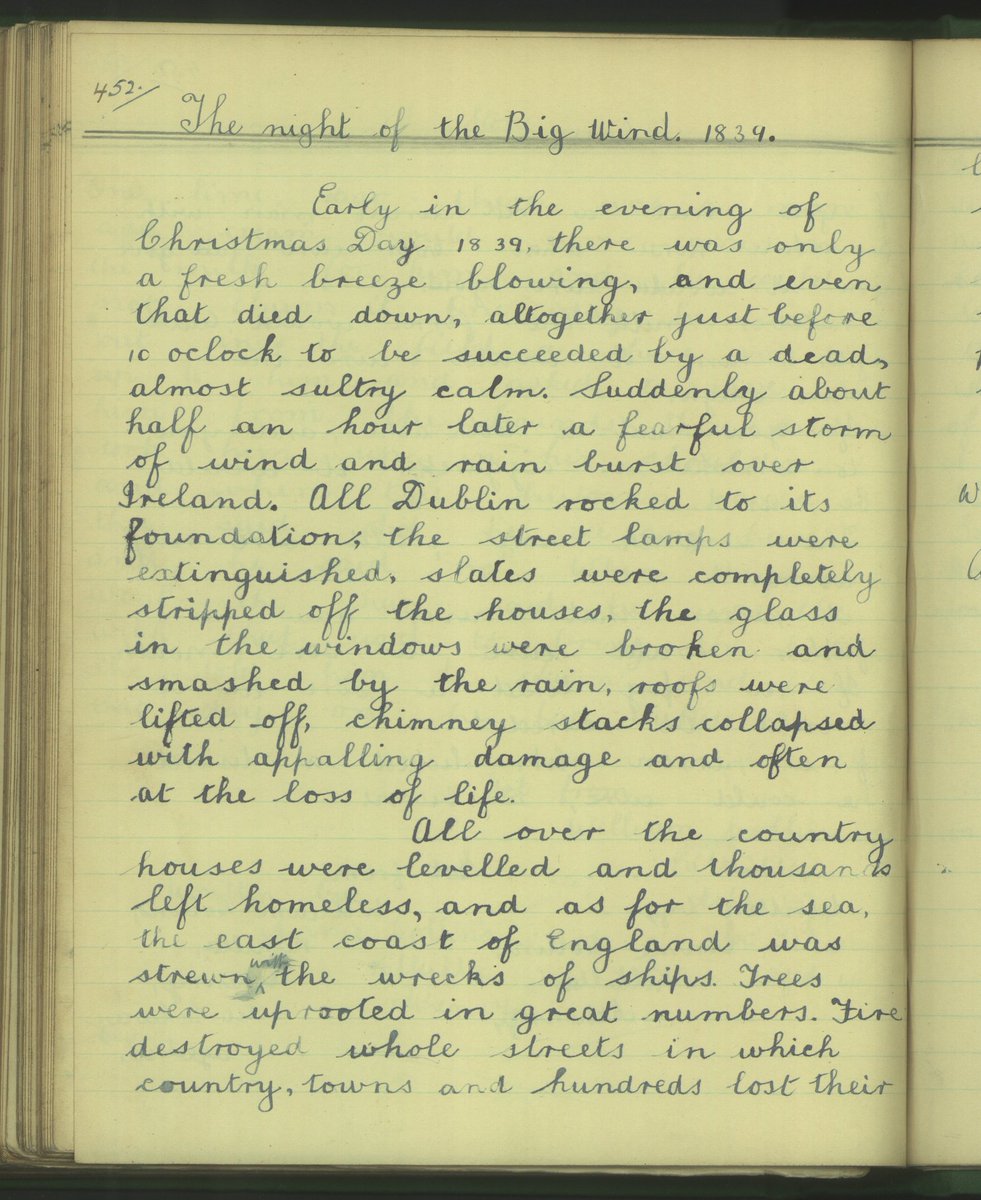 452.
The night of the Big Wind. 1839.
Early in the evening of
Christmas Day 1839, there was only
a fresh breeze blowing, and even
that died down, altogether just before
10 oclock to be succeeded by a dead,
almost sultry calm. Suddenly about
half an hour later a fearful storm
of wind and rain burst over
Ireland. All Dublin rocked to its
foundation; the street lamps were
extinguished, slates were completely
stripped off the houses, the glass
in the windows were broken and
smashed by the rain, roofs were
lifted off, chimney stacks collapsed
with appalling damage and often
at the loss of life.
All over the country
houses were levelled and thousands
left homeless, and as for the sea,
the east coast of England was
strewn with the wrecks of ships. Trees
were uprooted in great numbers. Fire
destroyed whole streets in which
country, towns and hundreds lost their